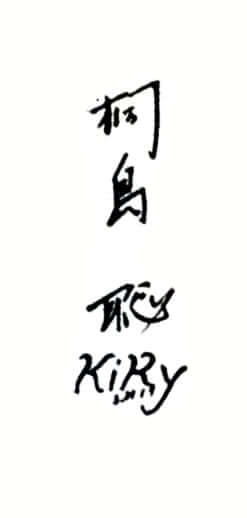 桐
島
聡
KiRy